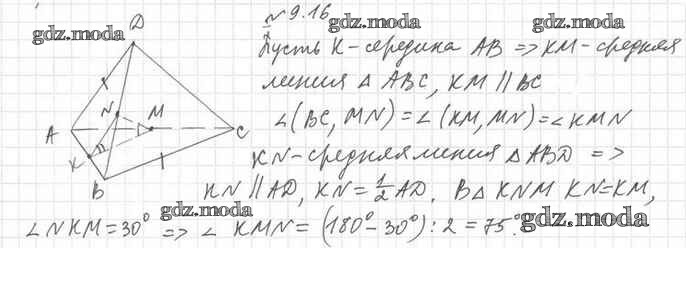 №9.16
gdz.moda gdz.moda gdz.moda
Пусть K-середина AB => KM-средняя
линия △ ABC, KM || BC
∠(BC, MN) = ∠(KM, MN) = ∠KMN
KN-средняя линия △ ABD =>
KN || AD, KN = 1/2 AD. В △ KNM KN=KM,
∠NKM = 30° => ∠ KMN = (180° - 30°) : 2 = 75°.
gdz.moda gdz.moda
D
N
M
A
C
K
B